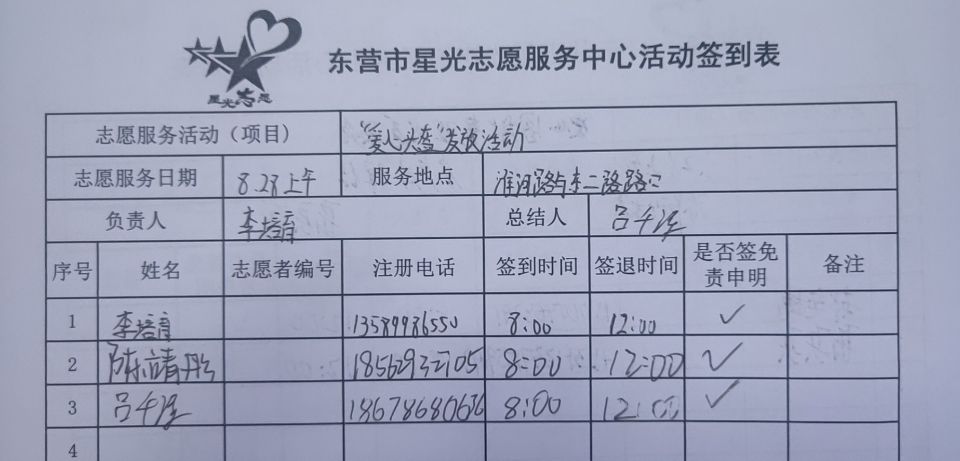 东营市星光志愿服务中心活动签到表
星光志愿
志愿服务活动（项目） "爱心头盔"发放活动
志愿服务日期 8.28上午 服务地点 淮河路与东二路路口
负责人 李培育 总结人 吕
序号 姓名 志愿者编号 注册电话 签到时间 签退时间 是否签免责申明 备注
1 李培育 13589986550 8:00 12:00 ✓
2 陈靖彤 8:00 12:00 ✓
3 吕 18678680636 8:00 12:00 ✓
4